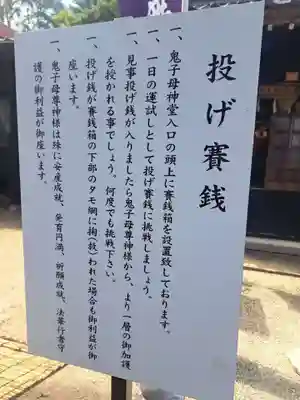 投げ賽銭
一、鬼子母神堂入口の頭上に賽銭箱を設置致しております。
一、一日の運試しとして投げ賽銭に挑戦しましょう。
一、見事投げ銭が入りましたら鬼子母尊神様から、より一層の御加護
を授かれる事でしょう。何度でも挑戦下さい。
一、投げ銭が賽銭箱の下部のタモ網に掬(救)われた場合も御利益が御
座います。
一、鬼子母尊神様は殊に安産成就、発育円満、祈願成就、法華行者守
護の御利益が御座います。